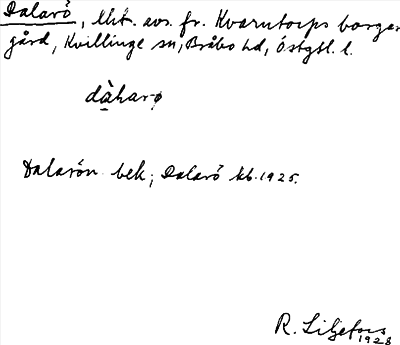 Dalarö, lht. avs. fr. Kvarntorps borgar
gård, Kvillinge sn, Bråbo hd, Östgtl. l.
dàlarø
Dalarön bek; Dalarö kb. 1925.
R. Liljefors
1928